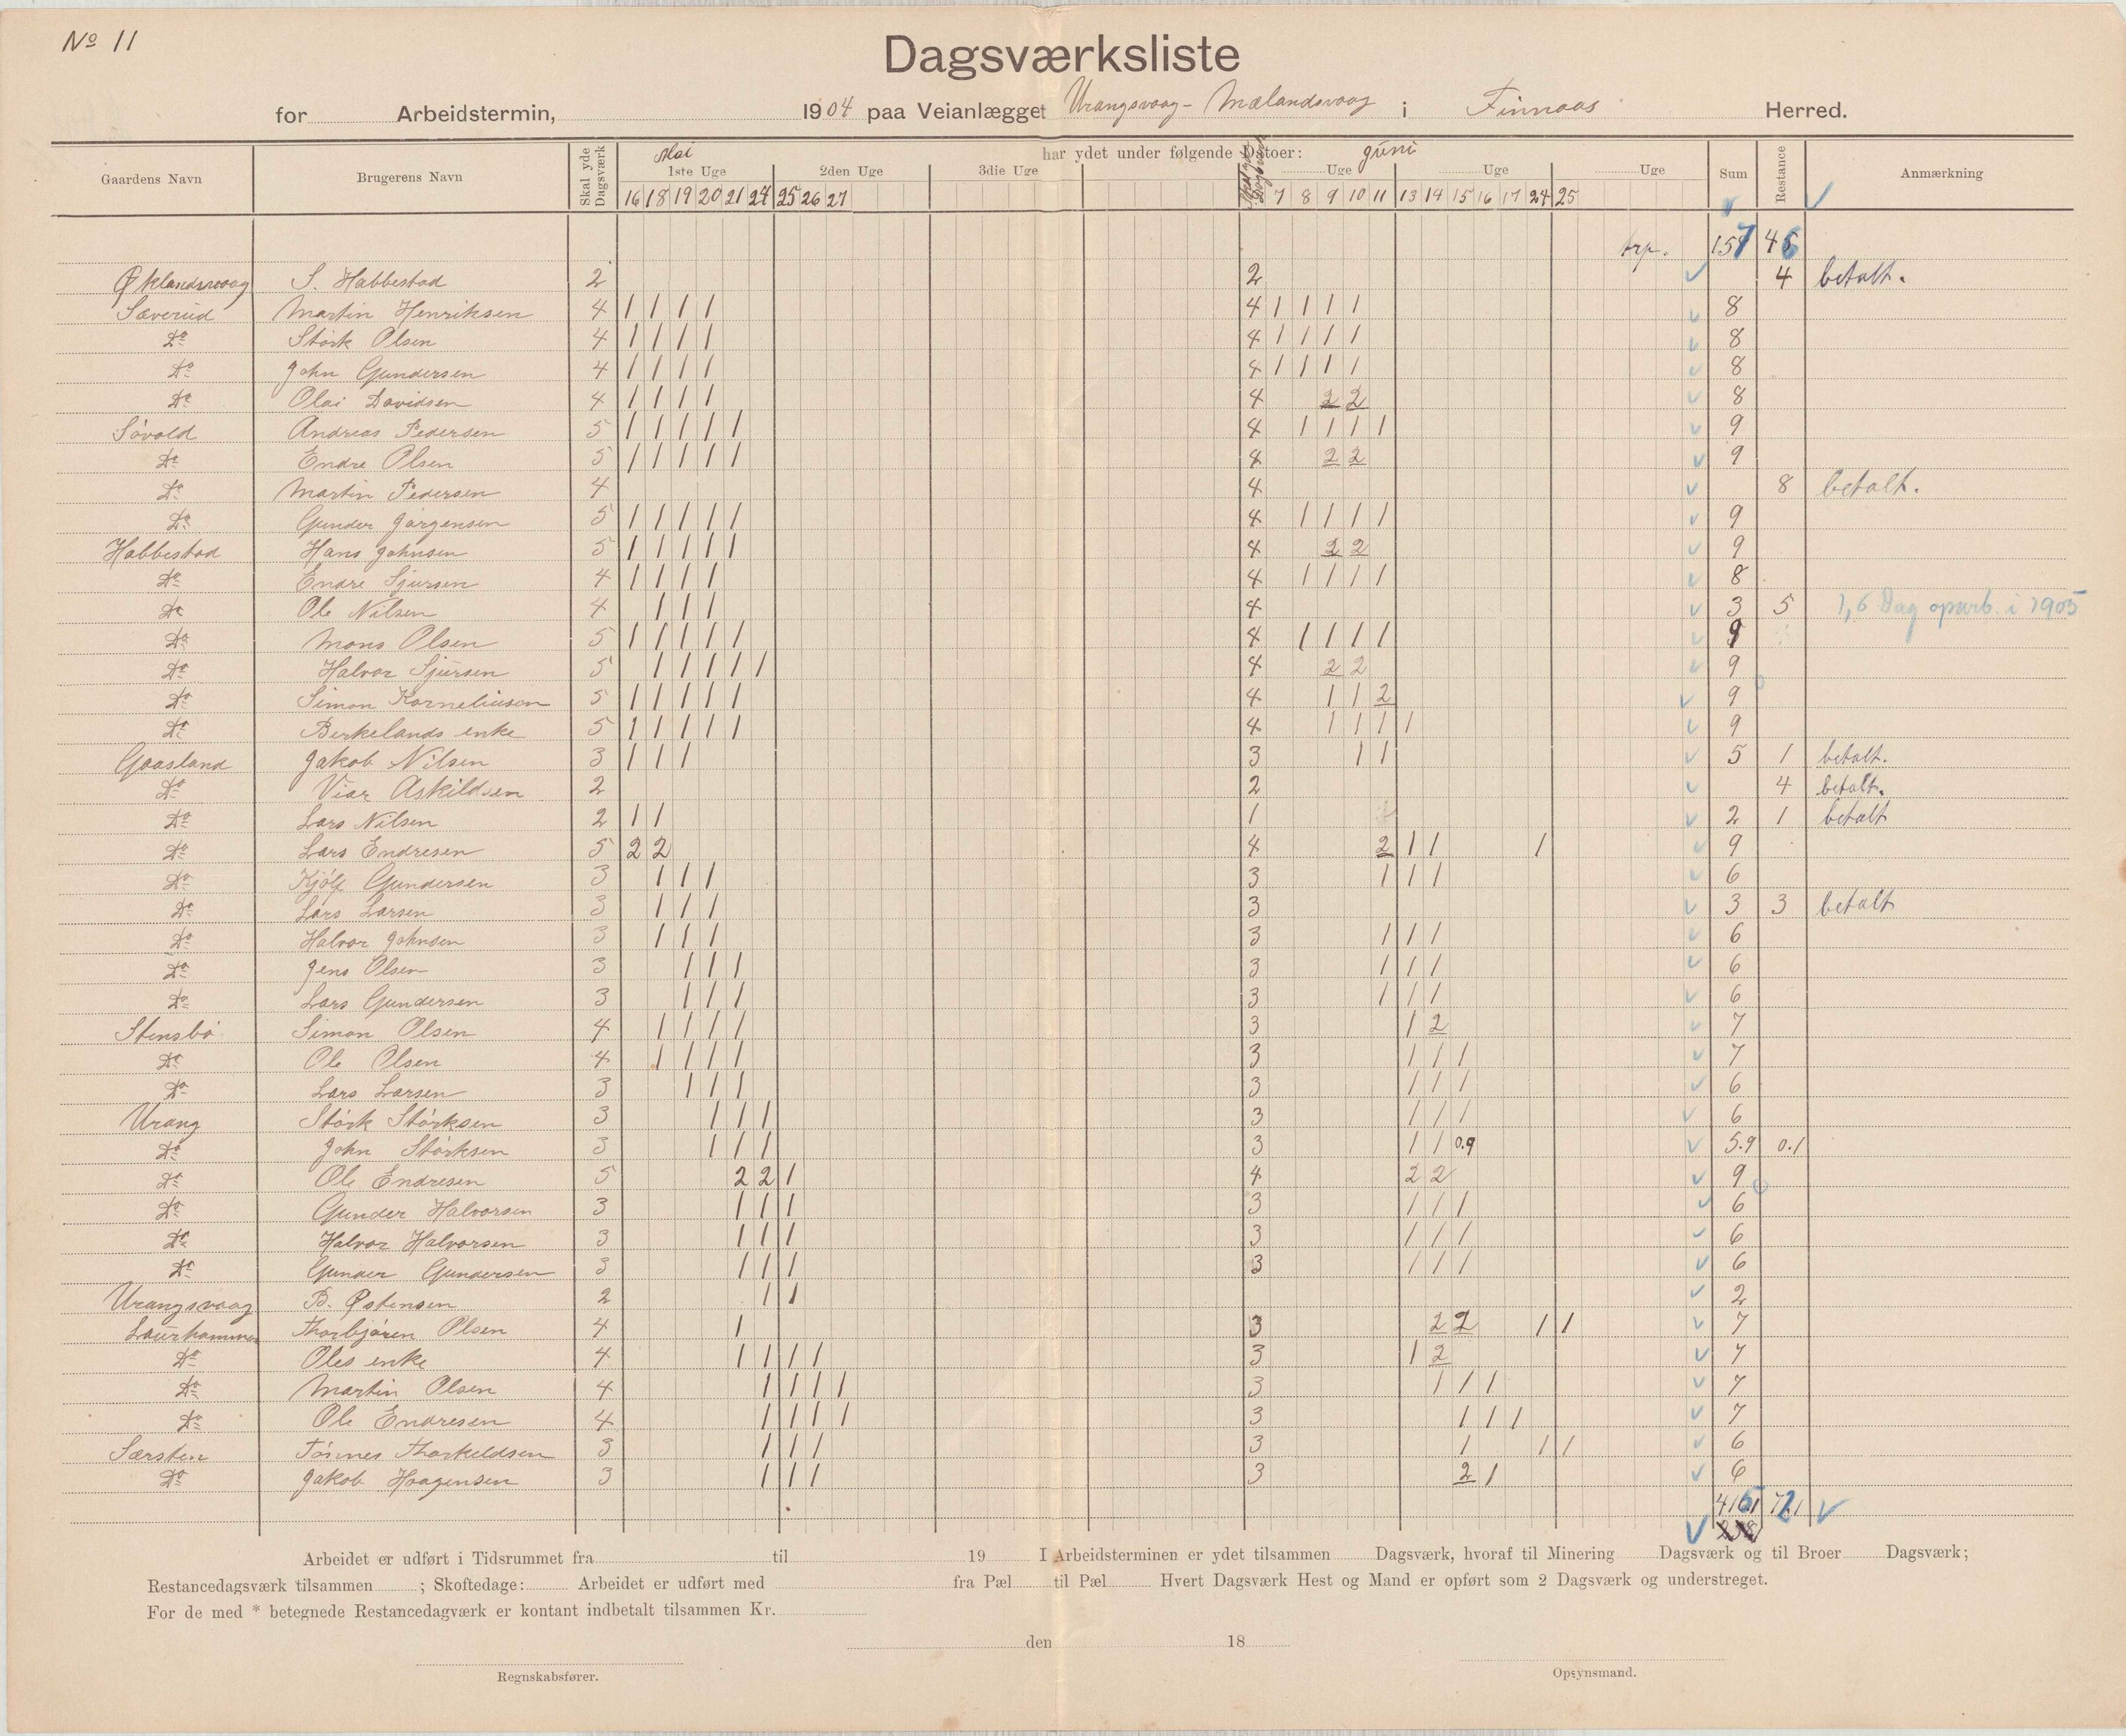 No 11
Dagsværksliste
for Arbeidstermin, 1904 paa Veianlægget Urangsvaag - Mælandsvaag i Finnaas Herred.
Gaardens Navn Brugerens Navn Skal yde Dagsværk Mai har ydet under følgende Datoer: Juni Sum Restance Anmærkning
1ste Uge 2den Uge 3die Uge Uge Uge Uge
16 18 19 20 21 24 25 26 27 7 8 9 10 11 13 14 15 16 17 24 25
trp. 157 46
Øklandsvaag S. Habbestad 2 2 4 betalt.
Sæverud Martin Henriksen 4 1 1 1 1 4 1 1 1 1 8
Do Störk Olsen 4 1 1 1 1 4 1 1 1 1 8
Do John Gundersen 4 1 1 1 1 4 1 1 1 1 8
Do Olai Davidsen 4 1 1 1 1 4 2 2 8
Sövold Andreas Pedersen 5 1 1 1 1 1 4 1 1 1 1 9
Do Endre Olsen 5 1 1 1 1 1 4 2 2 9
Do Martin Pedersen 4 4 8 betalt.
Do Gunder Jörgensen 5 1 1 1 1 1 4 1 1 1 1 9
Habbestad Hans Johnsen 5 1 1 1 1 1 4 2 2 9
Do Endre Sjursen 4 1 1 1 1 4 1 1 1 1 8
Do Ole Nilsen 4 1 1 1 4 3 5 1,6 Dag oparb. i 1905
Do Mons Olsen 5 1 1 1 1 1 4 1 1 1 1 9
Do Halvor Sjursen 5 1 1 1 1 1 4 2 2 9
Do Simon Korneliusen 5 1 1 1 1 1 4 1 1 2 9
Do Birkelands enke 5 1 1 1 1 1 4 1 1 1 1 9
Gaasland Jakob Nilsen 3 1 1 1 3 1 1 5 1 betalt.
Do Viar Askildsen 2 2 4 betalt.
Do Lars Nilsen 2 1 1 1 2 1 betalt
Do Lars Endresen 5 2 2 4 2 1 1 1 9
Do Kjölf Gundersen 3 1 1 1 3 1 1 1 6
Do Lars Larsen 3 1 1 1 3 3 3 betalt
Do Halvor Johnsen 3 1 1 1 3 1 1 1 6
Do Jens Olsen 3 1 1 1 3 1 1 1 6
Do Lars Gundersen 3 1 1 1 3 1 1 1 6
Stensbö Simon Olsen 4 1 1 1 1 3 1 2 7
Do Ole Olsen 4 1 1 1 1 3 1 1 1 7
Do Lars Larsen 3 1 1 1 3 1 1 1 6
Urang Störk Störksen 3 1 1 1 3 1 1 1 6
Do John Störksen 3 1 1 1 3 1 1 0.9 5.9 0.1
Do Ole Endresen 5 2 2 1 4 2 2 9
Do Gunder Halvorsen 3 1 1 1 3 1 1 1 6
Do Halvor Halvorsen 3 1 1 1 3 1 1 1 6
Do Gunder Gundersen 3 1 1 1 3 1 1 1 6
Urangsvaag B. Östensen 2 1 1 2
Laurhammer Thorbjören Olsen 4 1 3 2 2 1 1 7
Do Oles enke 4 1 1 1 1 3 1 2 7
Do Martin Olsen 4 1 1 1 1 3 1 1 1 7
Do Ole Endresen 4 1 1 1 1 3 1 1 1 7
Særsten Tönnes Thorkeldsen 3 1 1 1 3 1 1 1 6
Do Jakob Haagensen 3 1 1 1 3 2 1 6
Arbeidet er udført i Tidsrummet fra til 19 I Arbeidsterminen er ydet tilsammen Dagsværk, hvoraf til Minering Dagsværk og til Broer Dagsværk;
Restancedagsværk tilsammen ; Skoftedage: Arbeidet er udført med fra Pæl til Pæl Hvert Dagsværk Hest og Mand er opført som 2 Dagsværk og understreget.
For de med * betegnede Restancedagværk er kontant indbetalt tilsammen Kr.
den 18
Regnskabsfører. Opsynsmand.